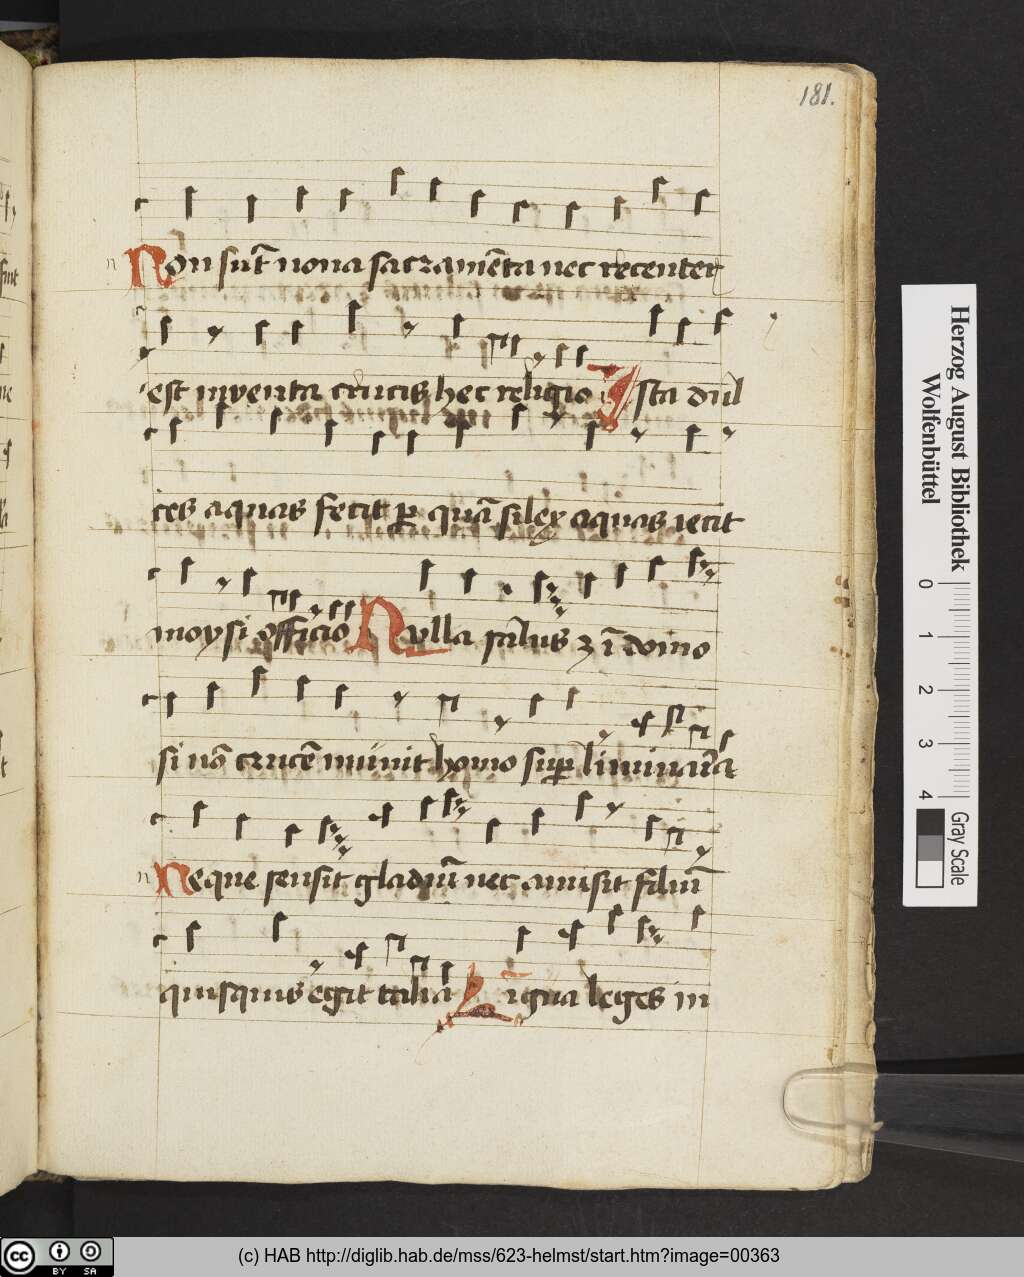 181.
Non sūt nova sacramēta nec recenter
est inventa crucis hec religio Ista dul
ces aquas fecit per quā silex aquas iecit
moysi officio Nulla salus ꝫ ī domo
si nō crucē munit homo super liminaria
Neque sensit gladiū nec amisit filiū
quisquis egit talia Ligna leges in
Herzog August Bibliothek
Wolfenbüttel
0 1 2 3 4
Gray Scale
cc BY SA
(c) HAB http://diglib.hab.de/mss/623-helmst/start.htm?image=00363